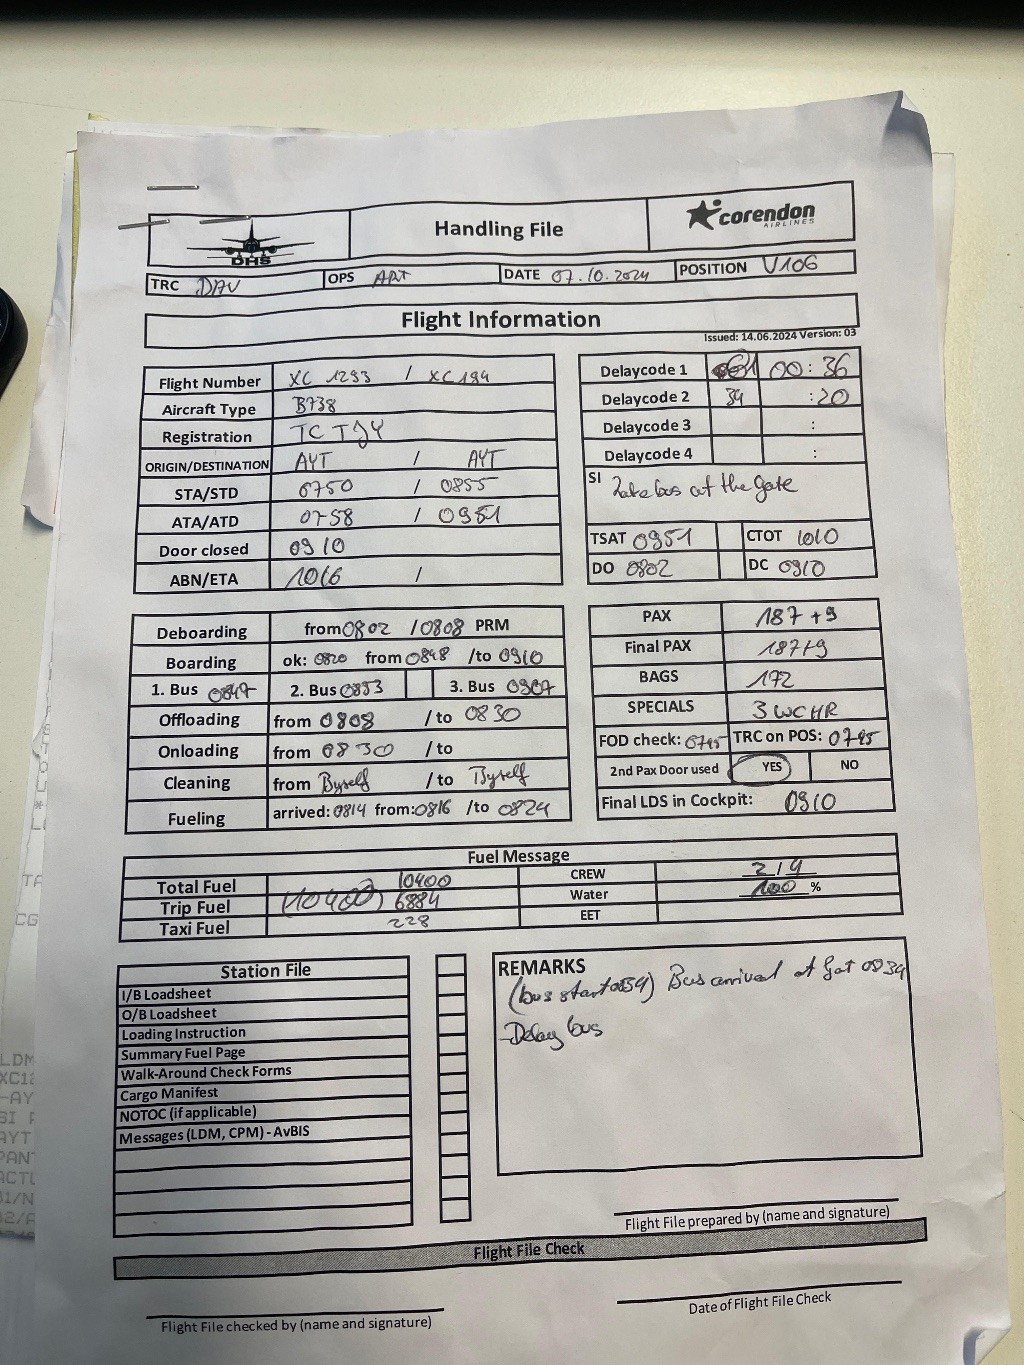 DHS
Handling File
corendon
AIRLINES
TRC DAV OPS ART DATE 07.10.2024 POSITION V106
Flight Information
Issued: 14.06.2024 Version: 03
Flight Number XC 1293 / XC 194
Aircraft Type B738
Registration TC TJY
ORIGIN/DESTINATION AYT / AYT
STA/STD 0750 / 0855
ATA/ATD 0758 / 0951
Door closed 0910
ABN/ETA 1016 /
Delaycode 1 00:36
Delaycode 2 :20
Delaycode 3 :
Delaycode 4 :
SI Late bus at the gate
TSAT 0951 CTOT 1010
DO 0802 DC 0910
Deboarding from 0802 / 0808 PRM
Boarding ok: 0820 from 0848 /to 0910
1. Bus 0847 2. Bus 0853 3. Bus 0907
Offloading from 0808 / to 0830
Onloading from 0830 / to
Cleaning from Byself / to Byself
Fueling arrived: 0814 from: 0816 /to 0824
PAX 187 + 9
Final PAX 187+9
BAGS 172
SPECIALS 3 WCHR
FOD check: 0745 TRC on POS: 0745
2nd Pax Door used YES NO
Final LDS in Cockpit: 0910
Fuel Message
Total Fuel 10400 CREW 2/4
Trip Fuel (10400) 6884 Water 100 %
Taxi Fuel 228 EET
Station File
I/B Loadsheet
O/B Loadsheet
Loading Instruction
Summary Fuel Page
Walk-Around Check Forms
Cargo Manifest
NOTOC (if applicable)
Messages (LDM, CPM) - AvBIS
REMARKS
(bus start 0854) Bus arrival at gat 0834
-Delay bus
Flight File prepared by (name and signature)
Flight File Check
Flight File checked by (name and signature)
Date of Flight File Check